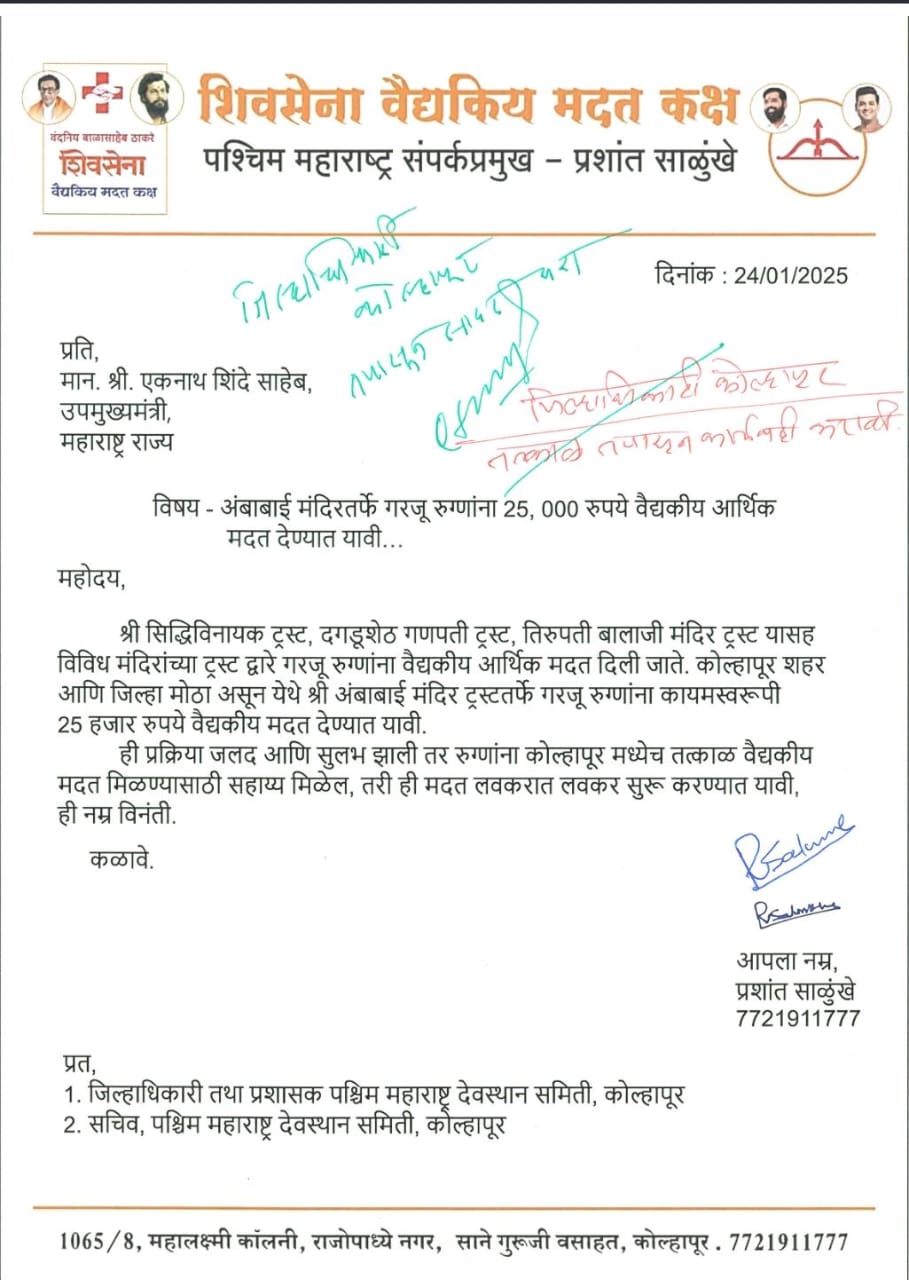 शिवसेना वैद्यकिय मदत कक्ष
वंदनिय बाळासाहेब ठाकरे
शिवसेना
वैद्यकिय मदत कक्ष
पश्चिम महाराष्ट्र संपर्कप्रमुख – प्रशांत साळुंखे
जिल्हाधिकारी
कोल्हापूर
तपासून सादर करा
दिनांक : 24/01/2025
प्रति,
मान. श्री. एकनाथ शिंदे साहेब,
उपमुख्यमंत्री,
महाराष्ट्र राज्य
जिल्हाधिकारी कोल्हापूर
तत्काळ तपासून कार्यवाही करावी.
विषय - अंबाबाई मंदिरतर्फे गरजू रुग्णांना 25, 000 रुपये वैद्यकीय आर्थिक
मदत देण्यात यावी...
महोदय,
श्री सिद्धिविनायक ट्रस्ट, दगडूशेठ गणपती ट्रस्ट, तिरुपती बालाजी मंदिर ट्रस्ट यासह
विविध मंदिरांच्या ट्रस्ट द्वारे गरजू रुग्णांना वैद्यकीय आर्थिक मदत दिली जाते. कोल्हापूर शहर
आणि जिल्हा मोठा असून येथे श्री अंबाबाई मंदिर ट्रस्टतर्फे गरजू रुग्णांना कायमस्वरूपी
25 हजार रुपये वैद्यकीय मदत देण्यात यावी.
ही प्रक्रिया जलद आणि सुलभ झाली तर रुग्णांना कोल्हापूर मध्येच तत्काळ वैद्यकीय
मदत मिळण्यासाठी सहाय्य मिळेल, तरी ही मदत लवकरात लवकर सुरू करण्यात यावी,
ही नम्र विनंती.
कळावे.
आपला नम्र,
प्रशांत साळुंखे
7721911777
प्रत,
1. जिल्हाधिकारी तथा प्रशासक पश्चिम महाराष्ट्र देवस्थान समिती, कोल्हापूर
2. सचिव, पश्चिम महाराष्ट्र देवस्थान समिती, कोल्हापूर
1065/8, महालक्ष्मी कॉलनी, राजोपाध्ये नगर, साने गुरूजी वसाहत, कोल्हापूर . 7721911777